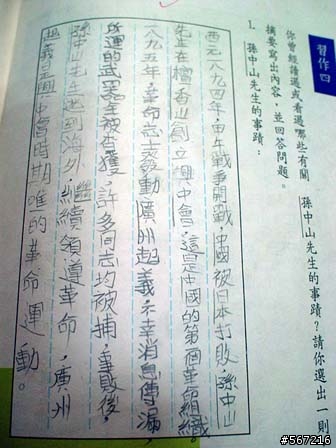 習作四
你曾經讀過或看過哪些有關 孫中山先生的事蹟？請你選出一則
摘要寫出內容，並回答問題。
1. 孫中山先生的事蹟：
西元一八九四年，甲午戰爭開戰，中國被日本打敗，孫中山
先生在檀香山創立興中會，這是中國的第一個革命組織。
一八九五年，革命志士發動廣州起義，不幸消息傳漏，
所運的武器全被查獲，許多同志均被捕，事敗後，
孫中山先生逃到海外，繼續領導革命，廣州
起義是興中會時期唯一的革命運動。
#567216